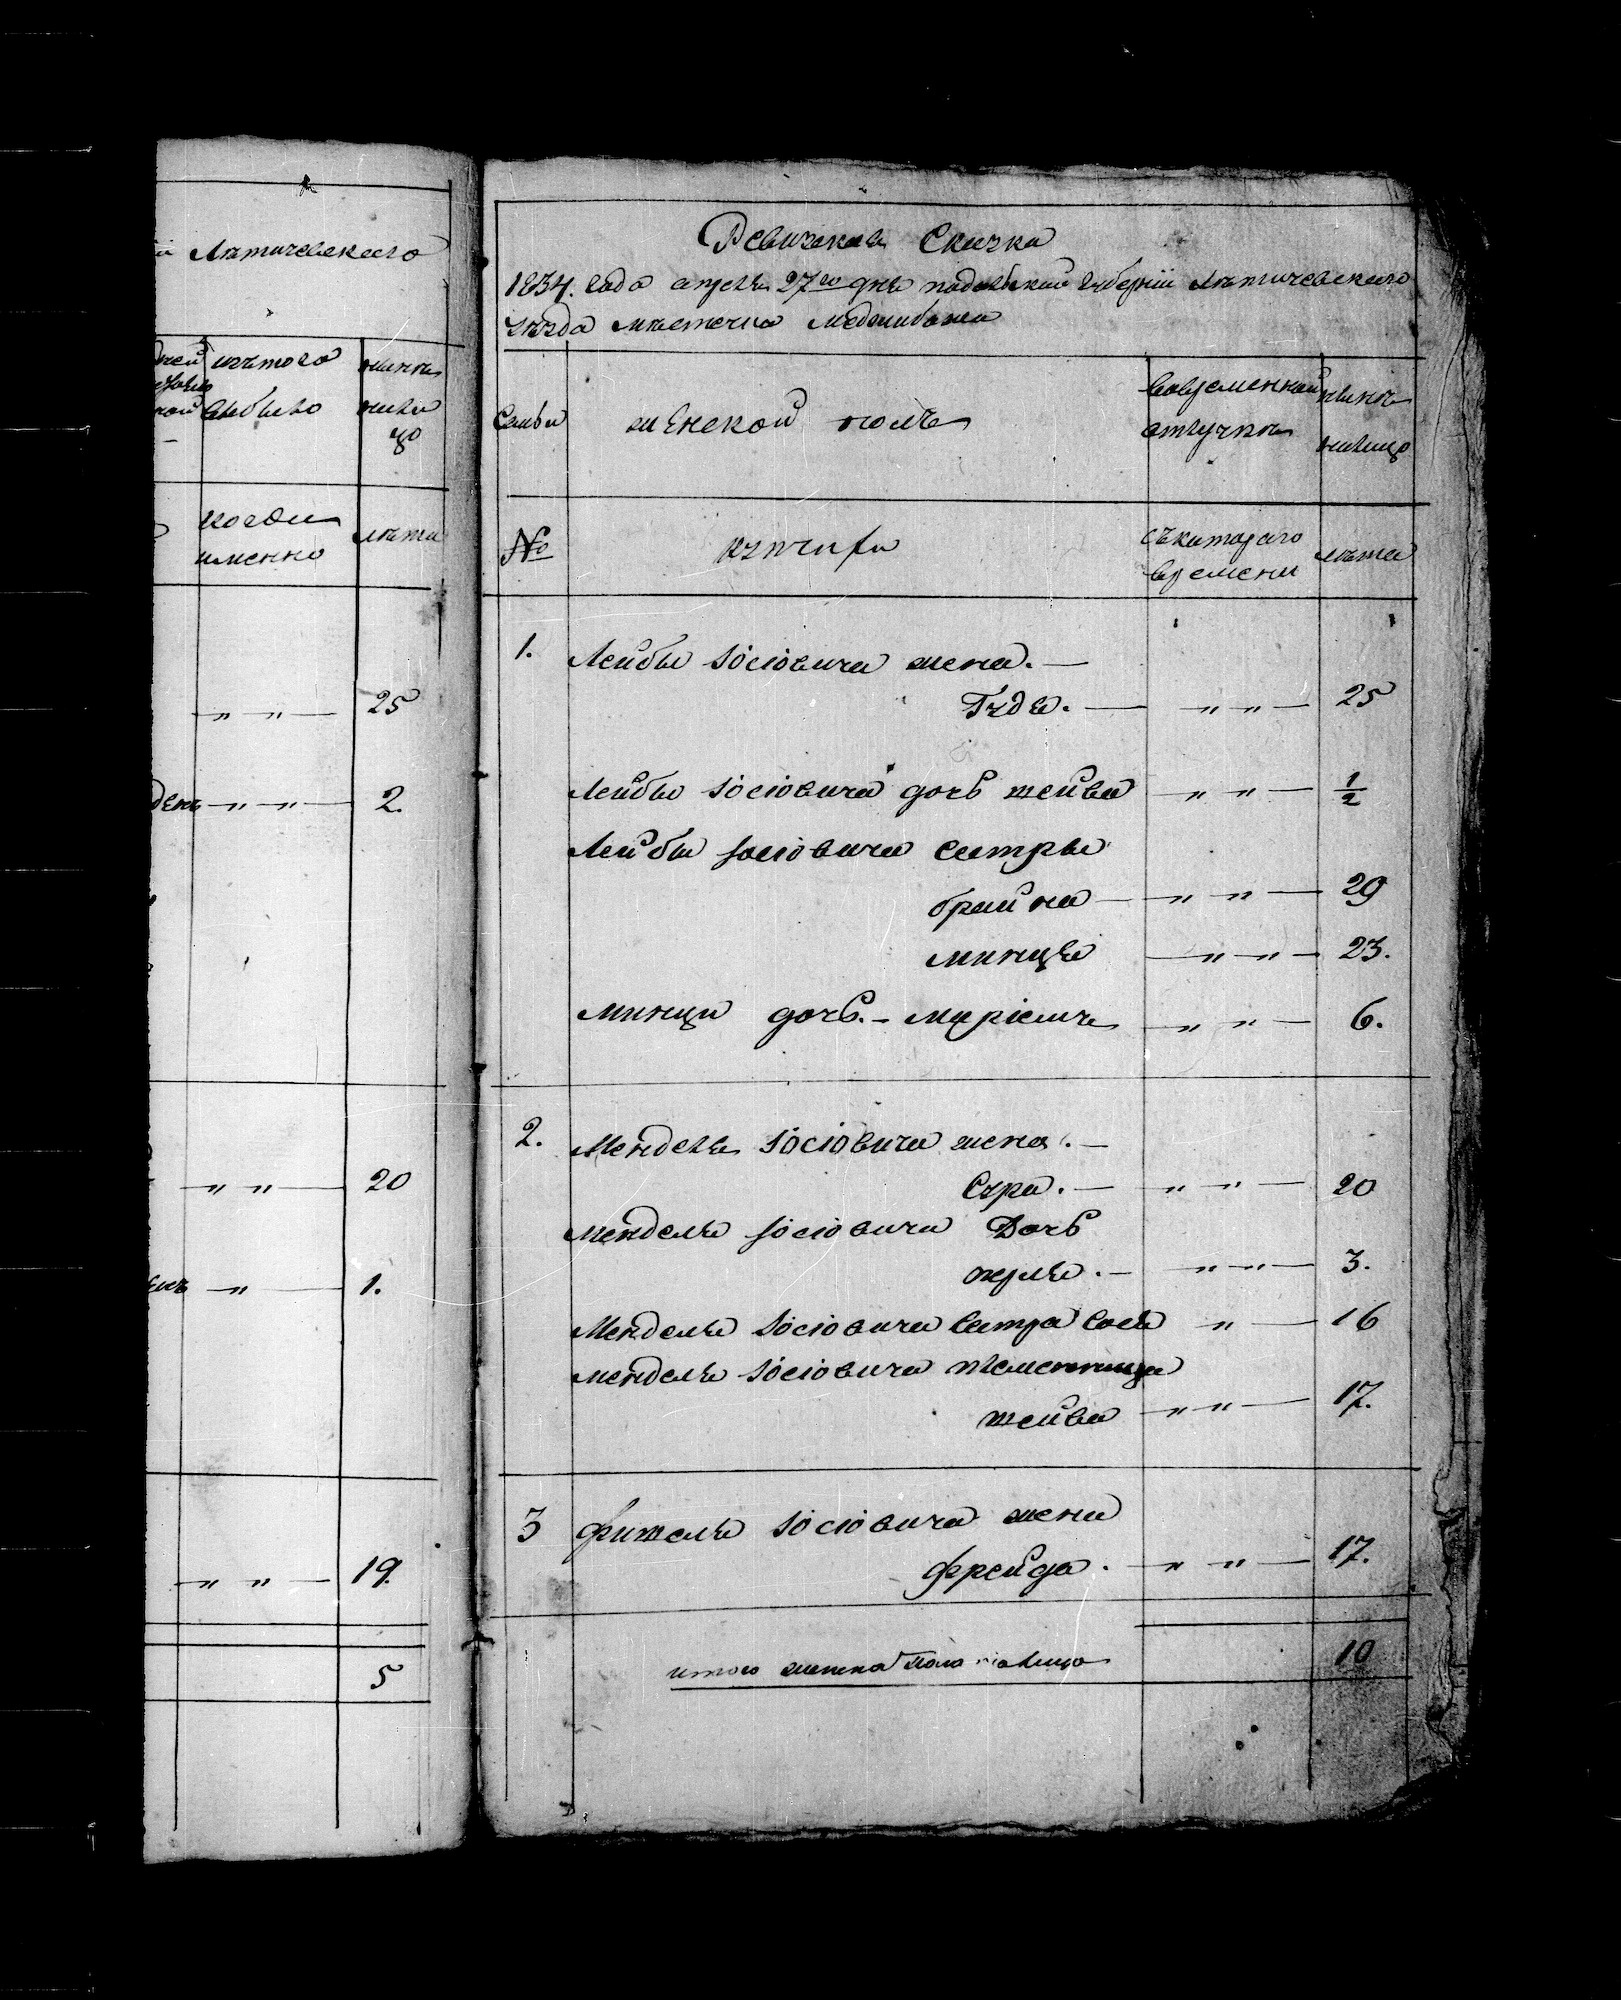 Лѣтичевскаго
изъ того
выбыло
нынѣ
на ли
цо
когда
именно
лѣта
„ „ 25
„ „ 2.
„ „ 20
„ 1.
„ „ 19.
5
Ревизская Скизка
1834. года апреля 27го дня подольской губернiи Лѣтичевскаго
уезда мѣстечка Меджибожа
Семьи
женской полъ
во временной
отлучкѣ
нынѣ
налицо
№
съ котораго
времени
лѣта
1. Лейбы Iосiовича жена. —
Гудя. — „ „ — 25
Лейбы Iосiовича дочь шейва — „ „ — 1/2
Лейбы Iосiовича сестры
брайна — „ „ — 29
минця — „ „ — 23.
минци дочь. — марiемъ — „ „ — 6.
2. Менделя Iосiовича жена. —
Сура. — „ „ — 20
менделя Iосiовича Дочь
перля. — „ „ — 3.
Менделя Iосiовича сестра сося „ — 16
менделя Iосiовича племенница
шейва — „ „ — 17.
3 фишеля Iосiовича жена
фрейда. — „ „ — 17.
итого женска пола налицо 10